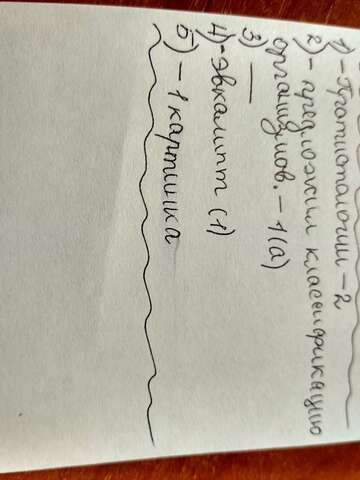 1) - Протистологии - 2
2) - предложил классификацию
организмов. - 1(а)
3) —
4) - эвкалипт (1)
5) - 1 картинка